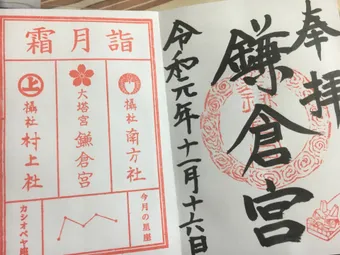 奉拝
鎌倉宮
令和元年十一月十六日
霜月詣
摂社 南方社
大塔宮 鎌倉宮
上
摂社 村上社
今月の星座
カシオペヤ座